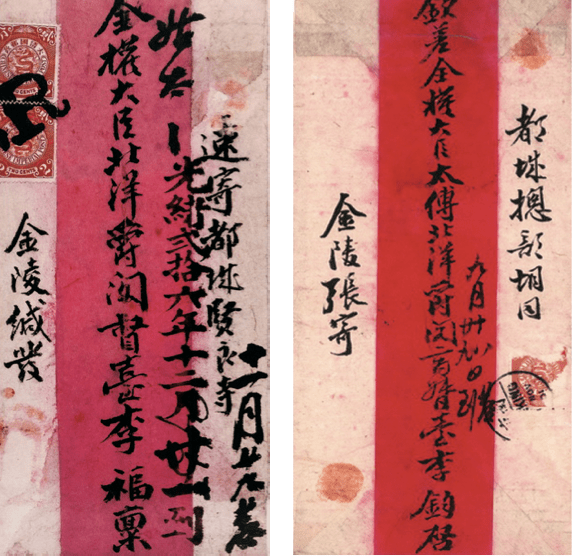 速寄都城賢良寺
十一月廿九
光緒貳拾六年十二月廿一到
金權大臣北洋爵閣督臺李 福稟
金陵緘發
都城總部胡同
欽差全權大臣太傅北洋爵閣督臺李 鈞啓
九月廿九日
金陵張寄